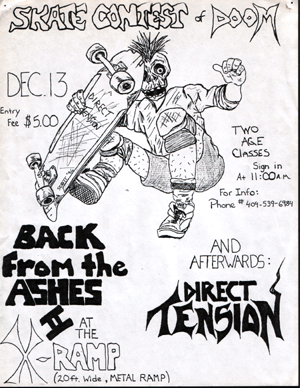 SKATE CONTEST of DOOM
DEC. 13
Entry
Fee $5.00
DIRECT
TENSION
TWO
AGE
CLASSES
Sign in
At 11:00 A.M.
For Info:
Phone # 409-539-6984
BACK
from the
ASHES
II
AT
THE
X-RAMP
(20 ft. Wide, METAL RAMP)
AND
AFTERWARDS:
DIRECT
TENSION